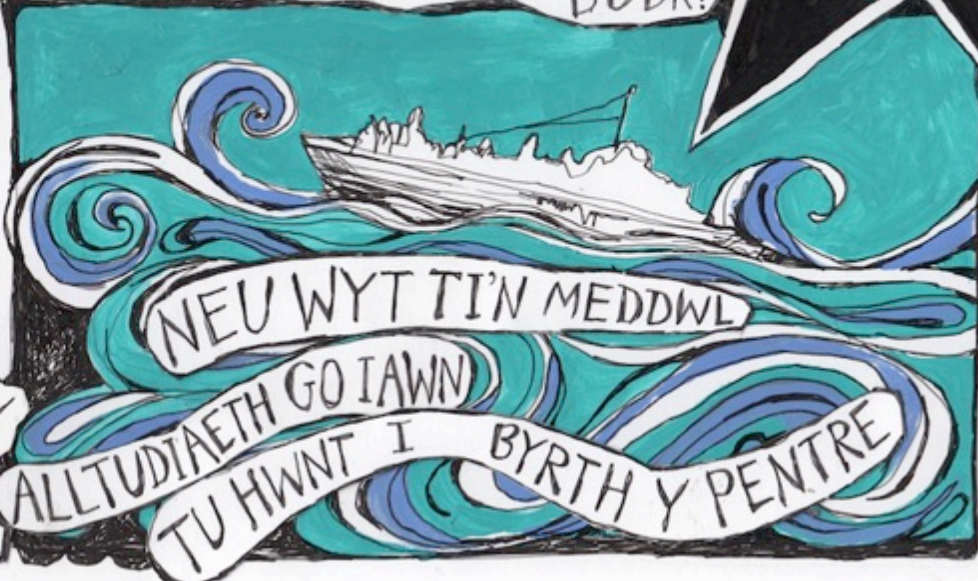 NEU WYT TI'N MEDDWL
ALLTUDIAETH GO IAWN
TU HWNT I BYRTH Y PENTRE